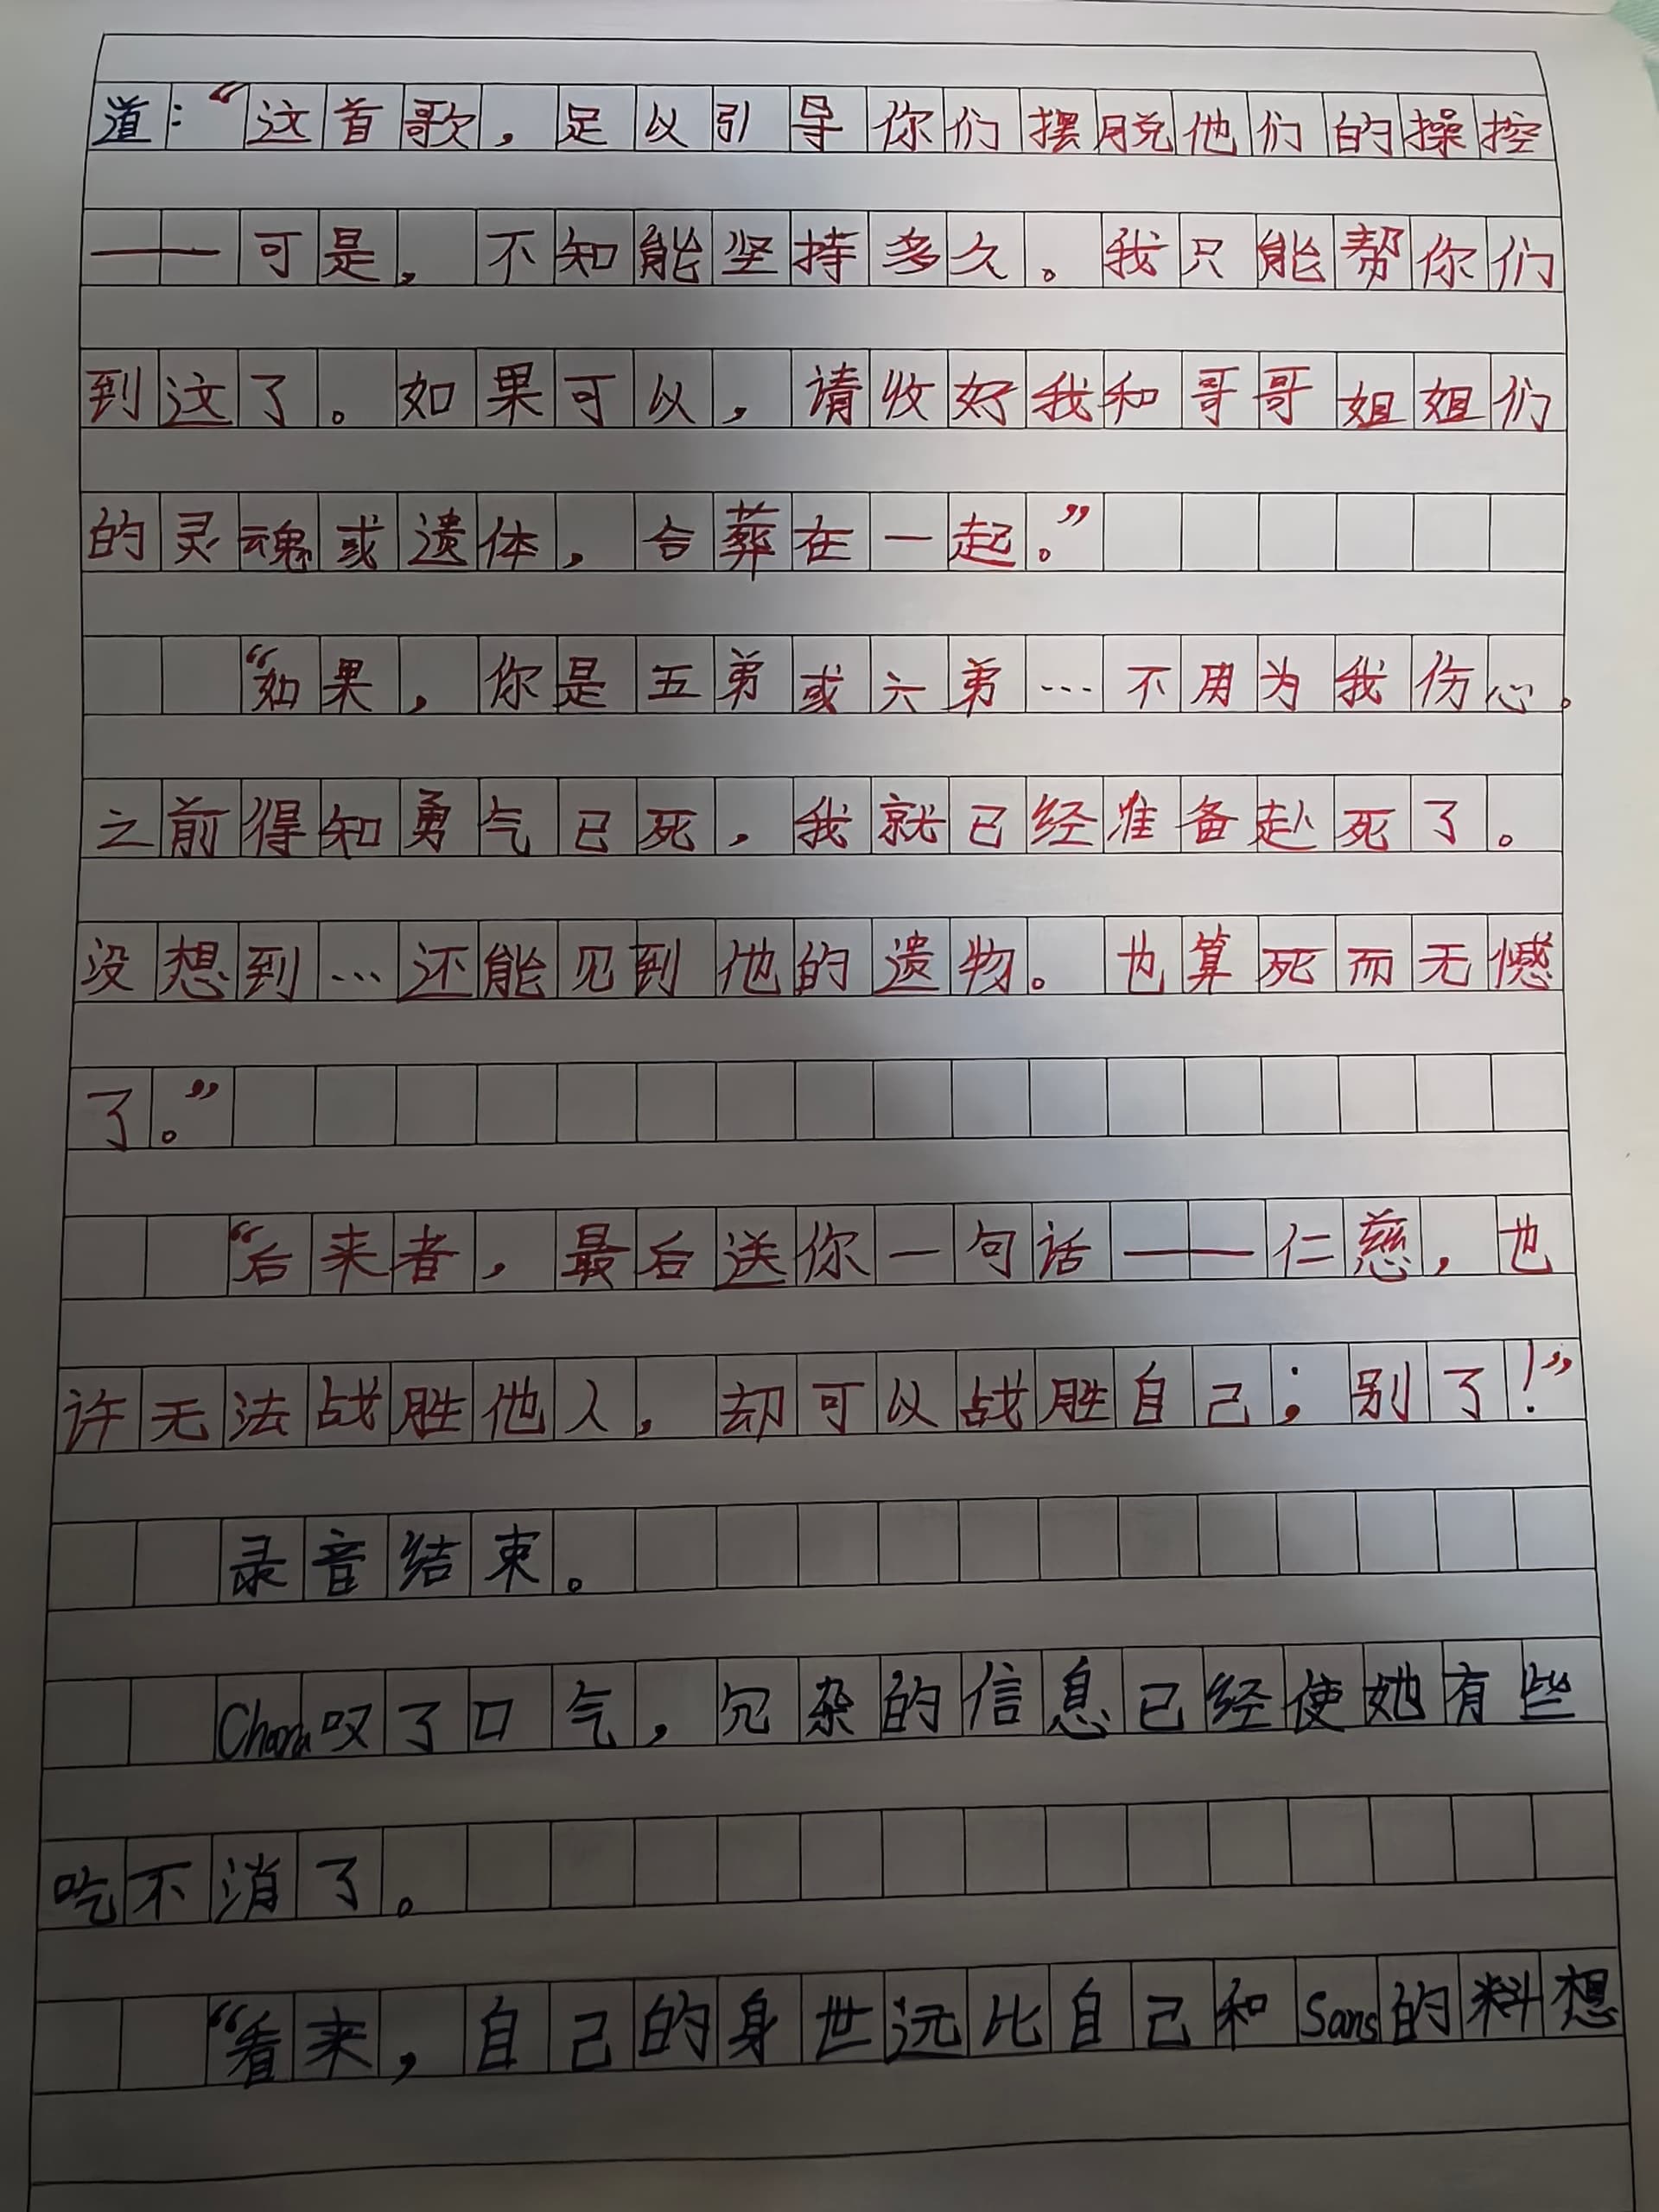 道：“这首歌，足以引导你们摆脱他们的操控
——可是，不知能坚持多久。我只能帮你们
到这了。如果可以，请收好我和哥哥姐姐们
的灵魂或遗体，合葬在一起。”
“如果，你是五弟或六弟…不用为我伤心。
之前得知勇气已死，我就已经准备赴死了。
没想到…还能见到他的遗物。也算死而无憾
了。”
“后来者，最后送你一句话——仁慈，也
许无法战胜他人，却可以战胜自己；别了！”
录音结束。
Chara叹了口气，冗杂的信息已经使她有些
吃不消了。
“看来，自己的身世远比自己和Sans的料想